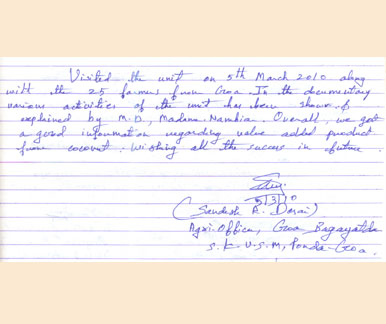 Visited the unit on 5th March 2010 along
with the 25 farmers from Goa. In the documentary
various activities of the unit has been shown &
explained by M.D., Madam Nambiar. Overall, we got
a good information regarding value added product
from coconut. Wishing all the success in future.
5/3/10
(Sandesh R. Desai)
Agri. Officer, Goa Bagayatdar
S.K.V.S.M, Ponda-Goa.